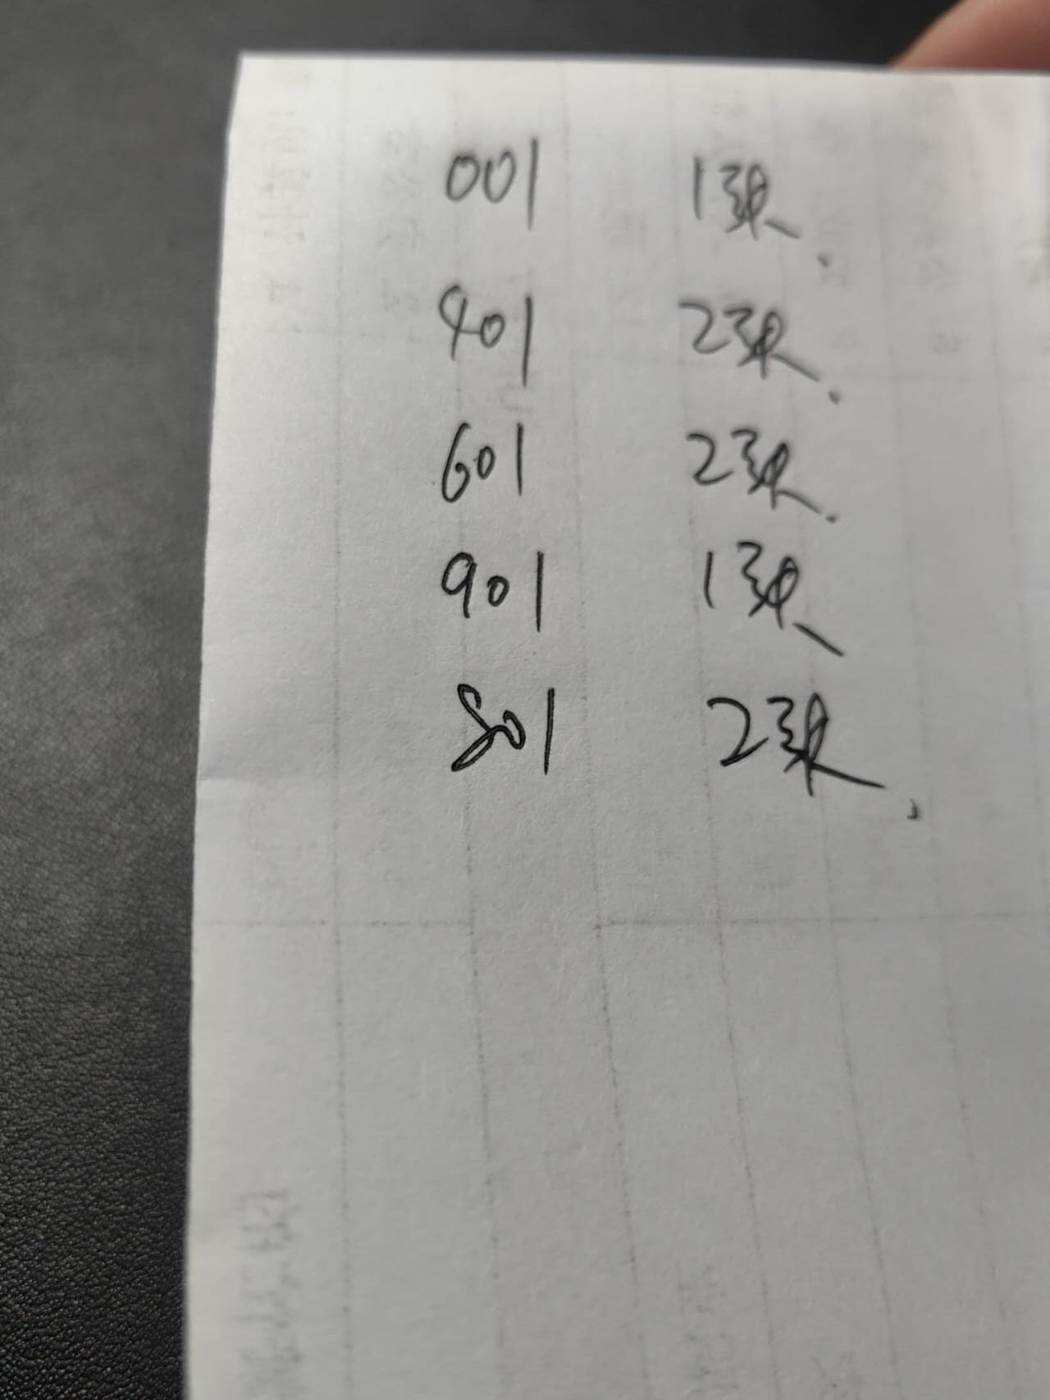 001 1张.
401 2张.
601 2张.
901 1张
801 2张.